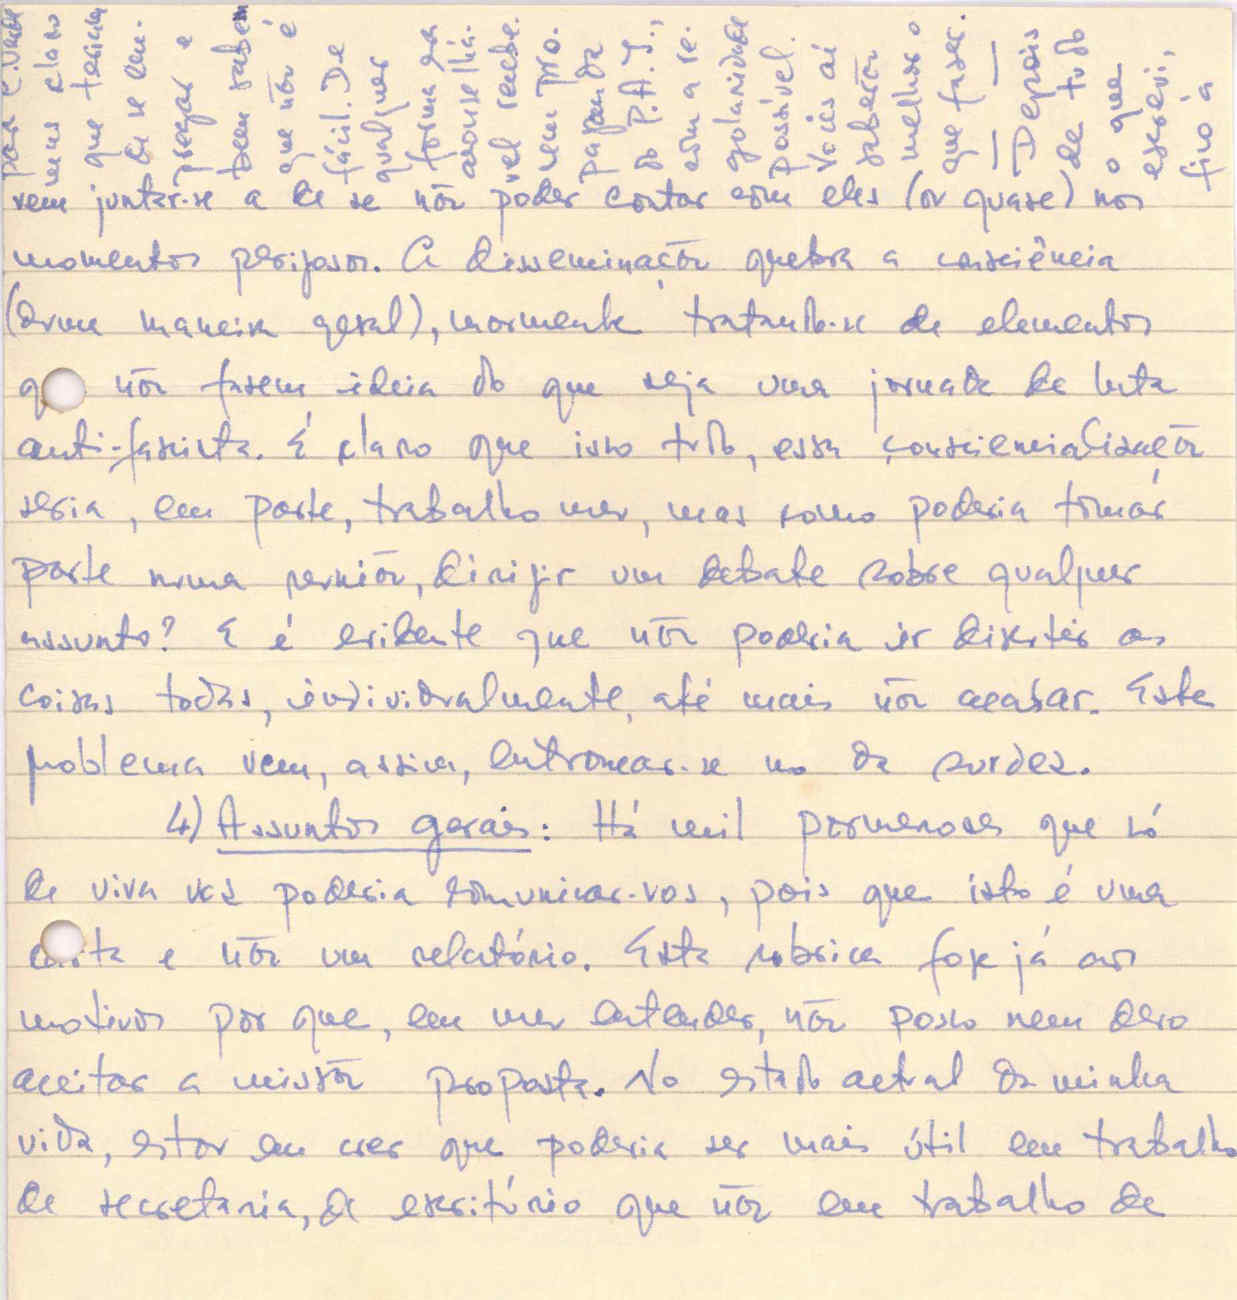 vem juntar-se a de se não poder contar com eles (ou quase) nos
momentos perigosos. A disseminação quebra a consciência
(duma maneira geral), mormente tratando-se de elementos
q não fasem ideia do que seja uma jornada de luta
anti-fascista. É claro que isso tudo, essa consciencialisação
seria, em parte, trabalho meu, mas como poderia tomar
parte numa reunião, dirigir um debate sobre qualquer
assunto? E é evidente que não poderia ir discutir as
coisas todas, individualmente, até mais não acabar. Este
problema vem, assim, entroncar-se no da surdez.
4) Assuntos gerais: Há mil pormenores que só
de viva voz poderia comunicar-vos, pois que isto é uma
carta e não um relatório. Esta rubrica foje já aos
motivos por que, em meu entender, não posso nem devo
aceitar a missão proposta. No estado actual da minha
vida, estou em crer que poderia ser mais útil em trabalho
de secretaria, de escritório que não em trabalho de
mas claro
que teria
de se em-
pregar e
bem sabem
que não é
fácil. De
qualquer
forma era
aconselhá-
vel receber
nem pro-
paganda
do P.A.I.,
com a re-
gularidade
possível.
Vocês aí
saberão
melhor o
que faser.
Depois
de tudo
o que
escrevi,
fico à